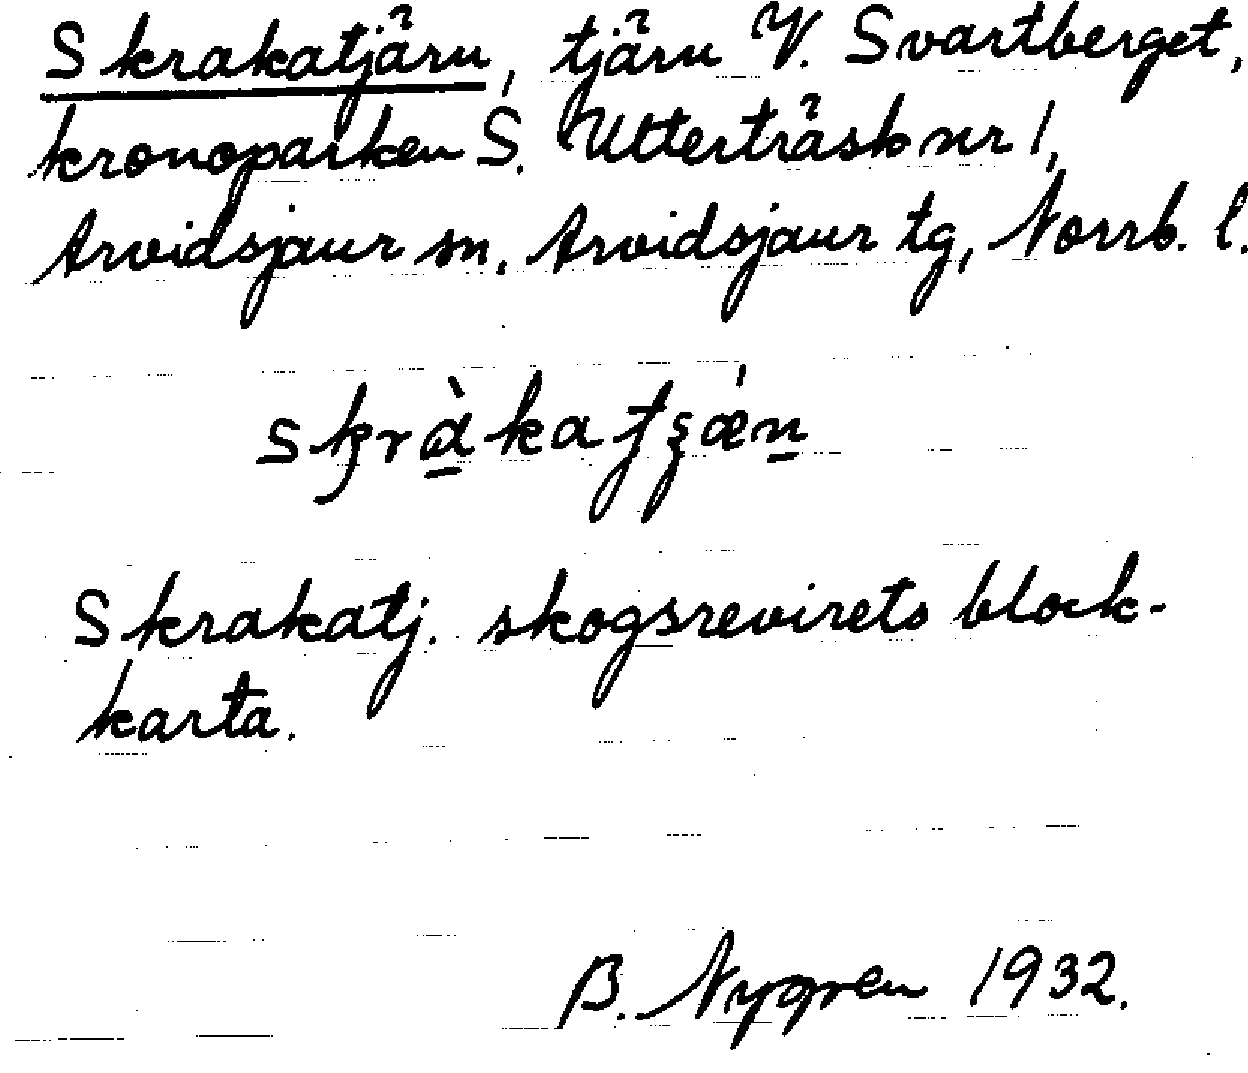 Skrakatjärn, tjärn V. Svartberget,
kronoparken S. Utterträsk nr 1,
Arvidsjaur sn. Arvidsjaur tg, Norrb. l.
Skrakatj. skogsrevirets block-
karta.
B. Nygren 1932.